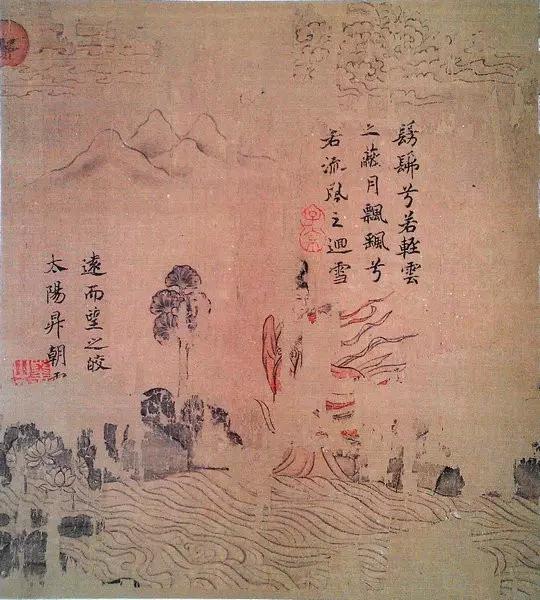 髣髴兮若輕雲
之蔽月飄颻兮
若流風之迴雪
遠而望之皎
太陽昇朝